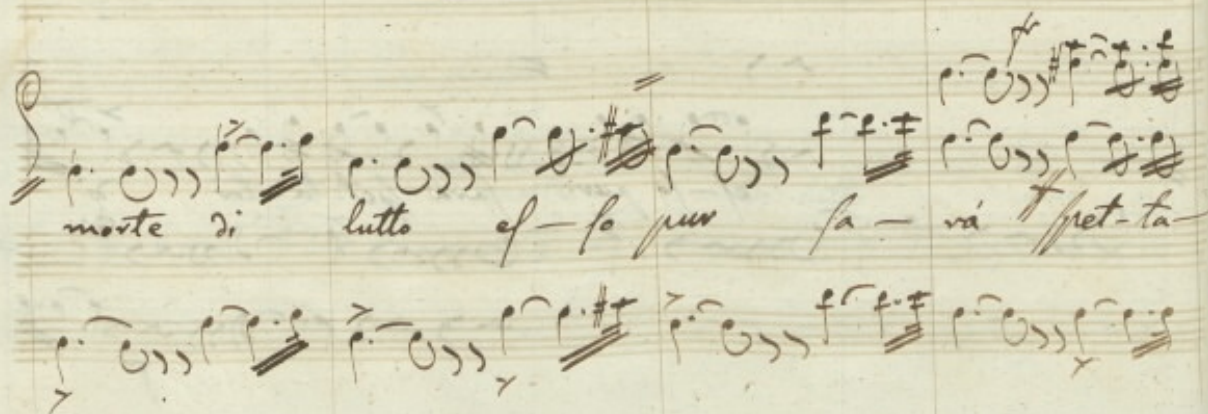 morte di lutto es-so pur sa-rá spet-ta-